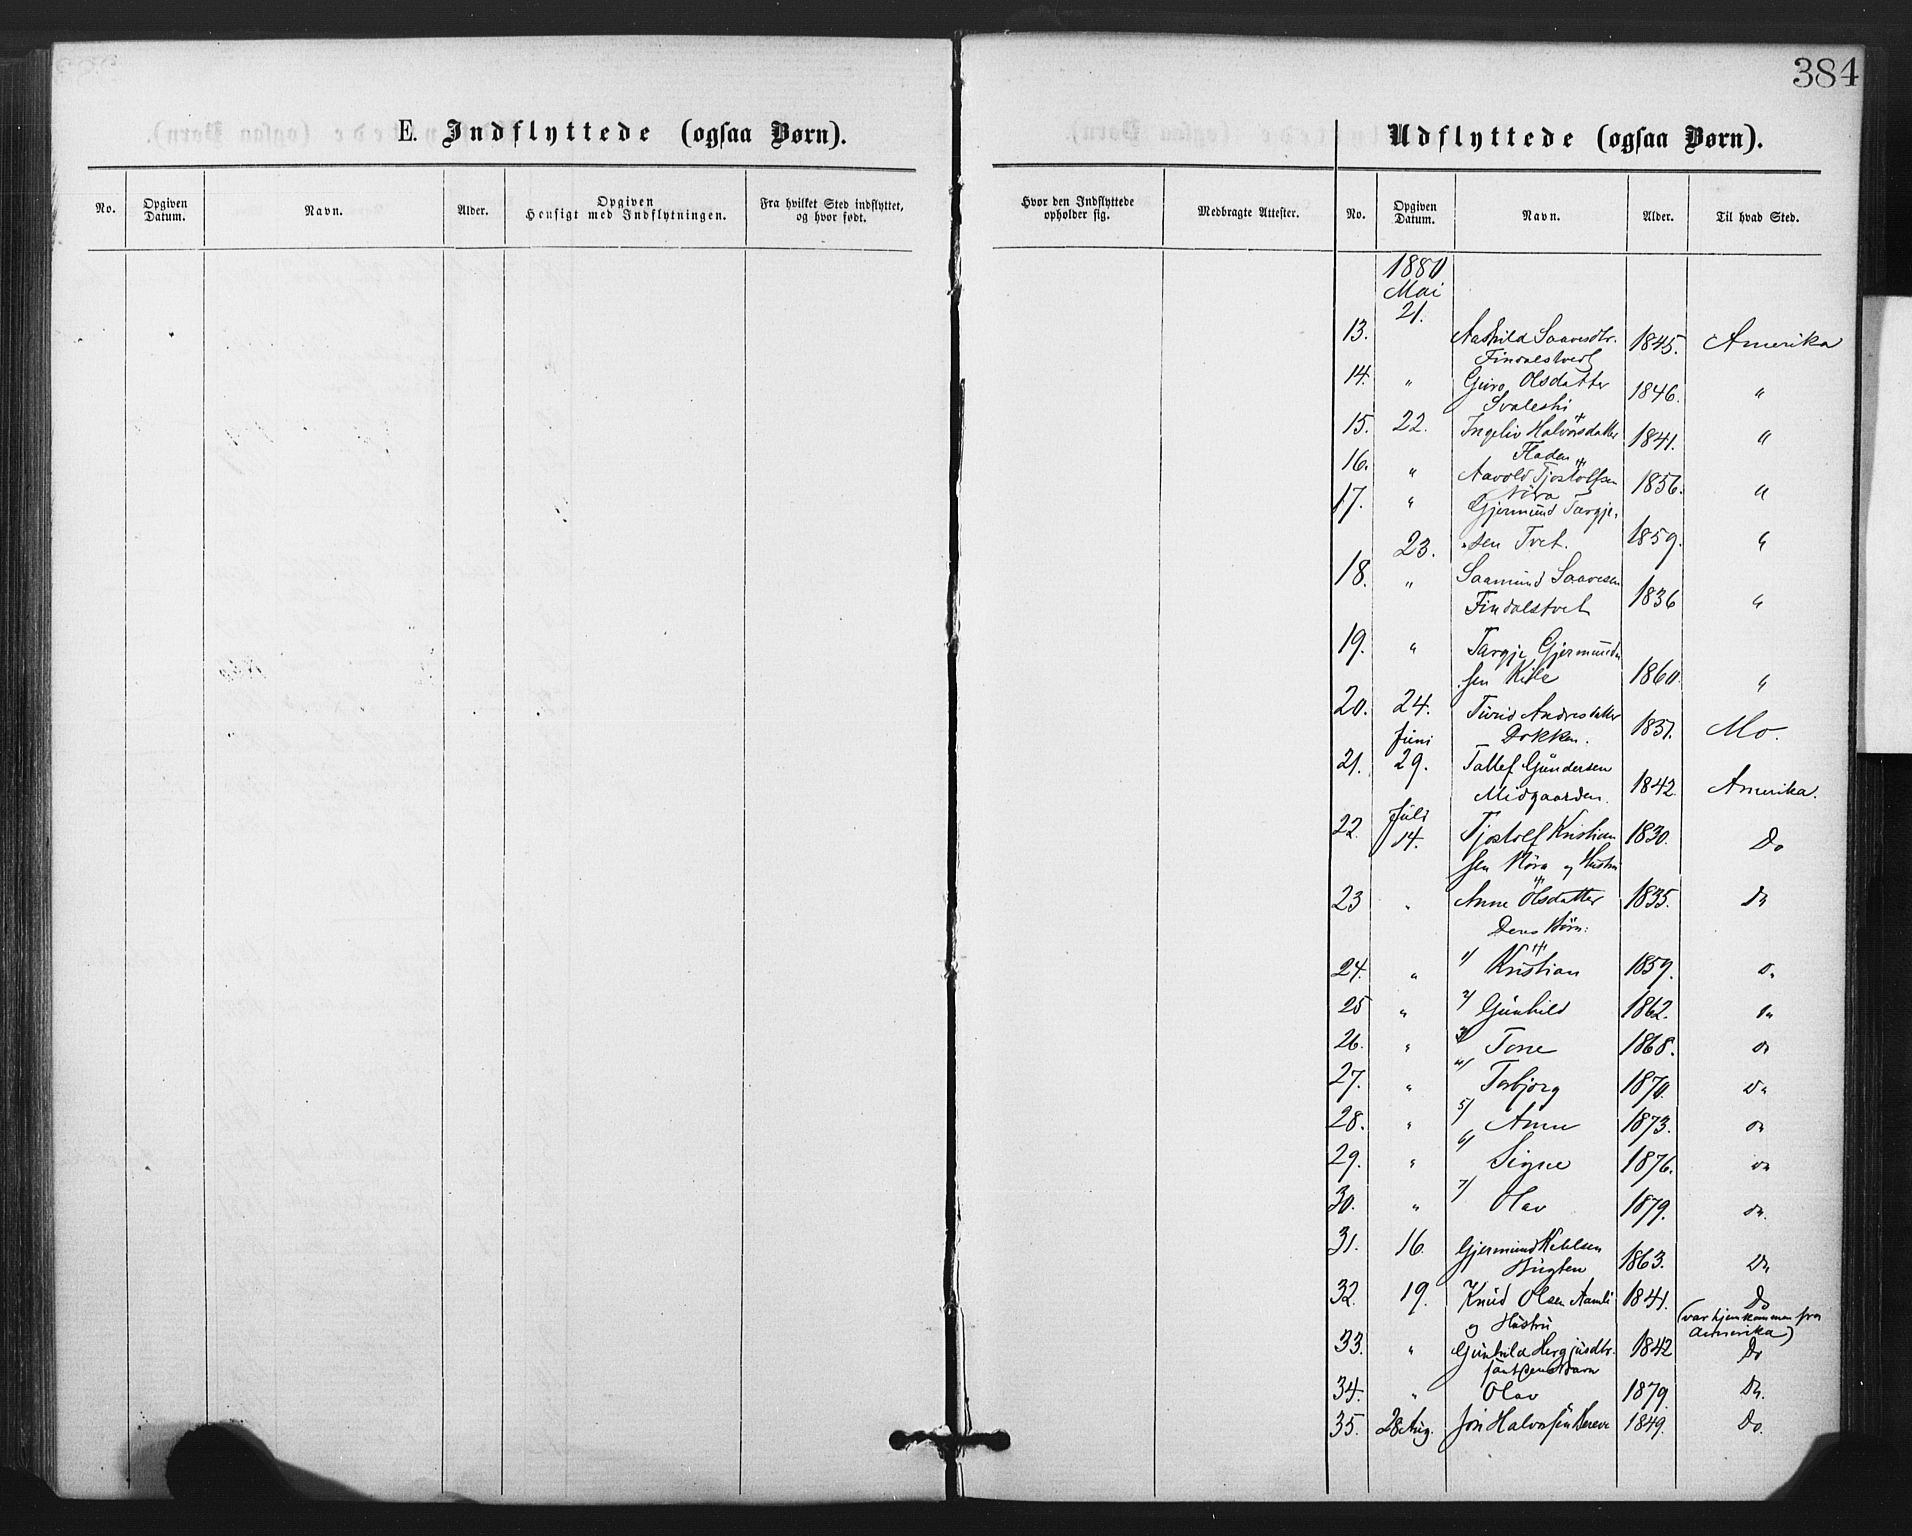 384
E. Indflyttede (ogsaa Børn).
Udflyttede (ogsaa Børn).
No. Opgiven Datum. Navn. Alder. Opgiven Hensigt med Indflytningen. Fra hvilket Sted indflyttet, og hvor født. Hvor den Indflyttede opholder sig. Medbragte Attester. No. Opgiven Datum. Navn. Alder. Til hvad Sted.
1880
Mai
21.
13. Aashild Saavesdtr. 1845. Amerika
Findalstvedt
14. " Guro Olsdatter 1846. "
15. 22. Ingeliv Halvorsdatter 1841. "
Fladen
16. " Aavold Tjostolfsen 1856. "
17. " Gjermund Targje-
23. sen Tvet. 1859. "
18. " Saamund Saavesen
Findalstvet 1836 "
19. " Targje Gjermund
sen Kile 1860. "
20. 24. Turid Andresdatter 1837. Mo.
Dokken.
Juni
21. 29. Tallef Gundersen
Midgaarden. 1842. Amerika.
Juli
22. 14. Tjostolf Kristian 1830. Do
sen Nöra og Hustru
23 " Anne Olsdatter 1835. Do
Deres Børn:
24. " 1/ Kristian 1859. Do
25 " 2/ Gunhild 1862. Do
26. " 3/ Tone 1868. Do
27. " 4/ Torbjorg 1870. Do
28. " 5/ Anne 1873. Do
29. " 6/ Signe 1876. Do
30. " 7/ Olav 1879. Do.
31. 16. Gjermund
1863. Do
32. 19. Knud Olsen Aamli 1841. Do
og Hustru (var hjemkommen fra
Amerika)
33. " Gunhild Hergjusdtr. 1842 Do
samt deres Barn
34. " Olav 1879. Do.
35. 28 Aug. Jon Halvorsen 1849. Do.